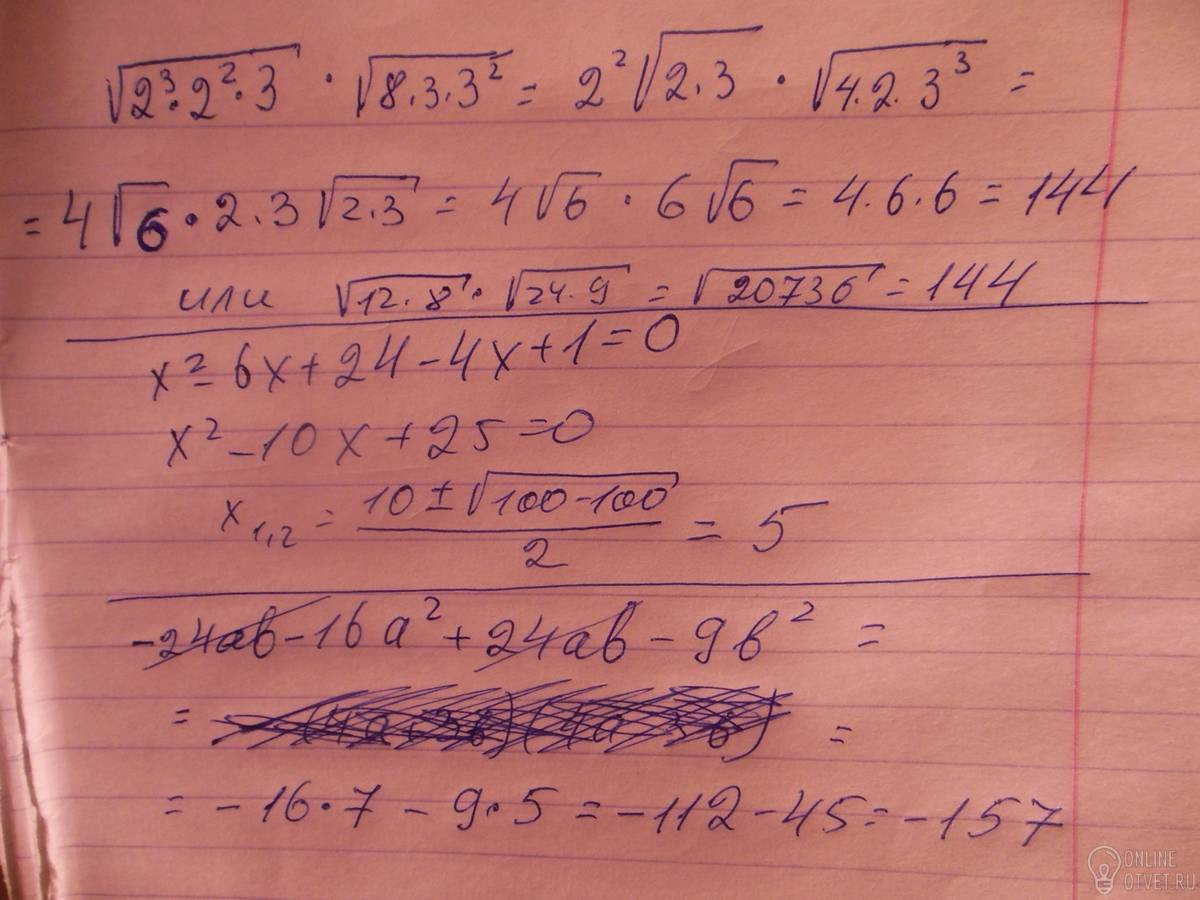 √(2³·2²·3) · √(8·3·3²) = 2²√(2·3) · √(4·2·3³) =
= 4√6 · 2·3√(2·3) = 4√6 · 6√6 = 4·6·6 = 144
или √(12·8) · √(24·9) = √20736 = 144
x² - 6x + 24 - 4x + 1 = 0
x² - 10x + 25 = 0
x₁,₂ = (10 ± √(100-100))/2 = 5
-24ab - 16a² + 24ab - 9b² =
= =
= -16·7 - 9·5 = -112 - 45 = -157
ONLINE
OTVET.RU